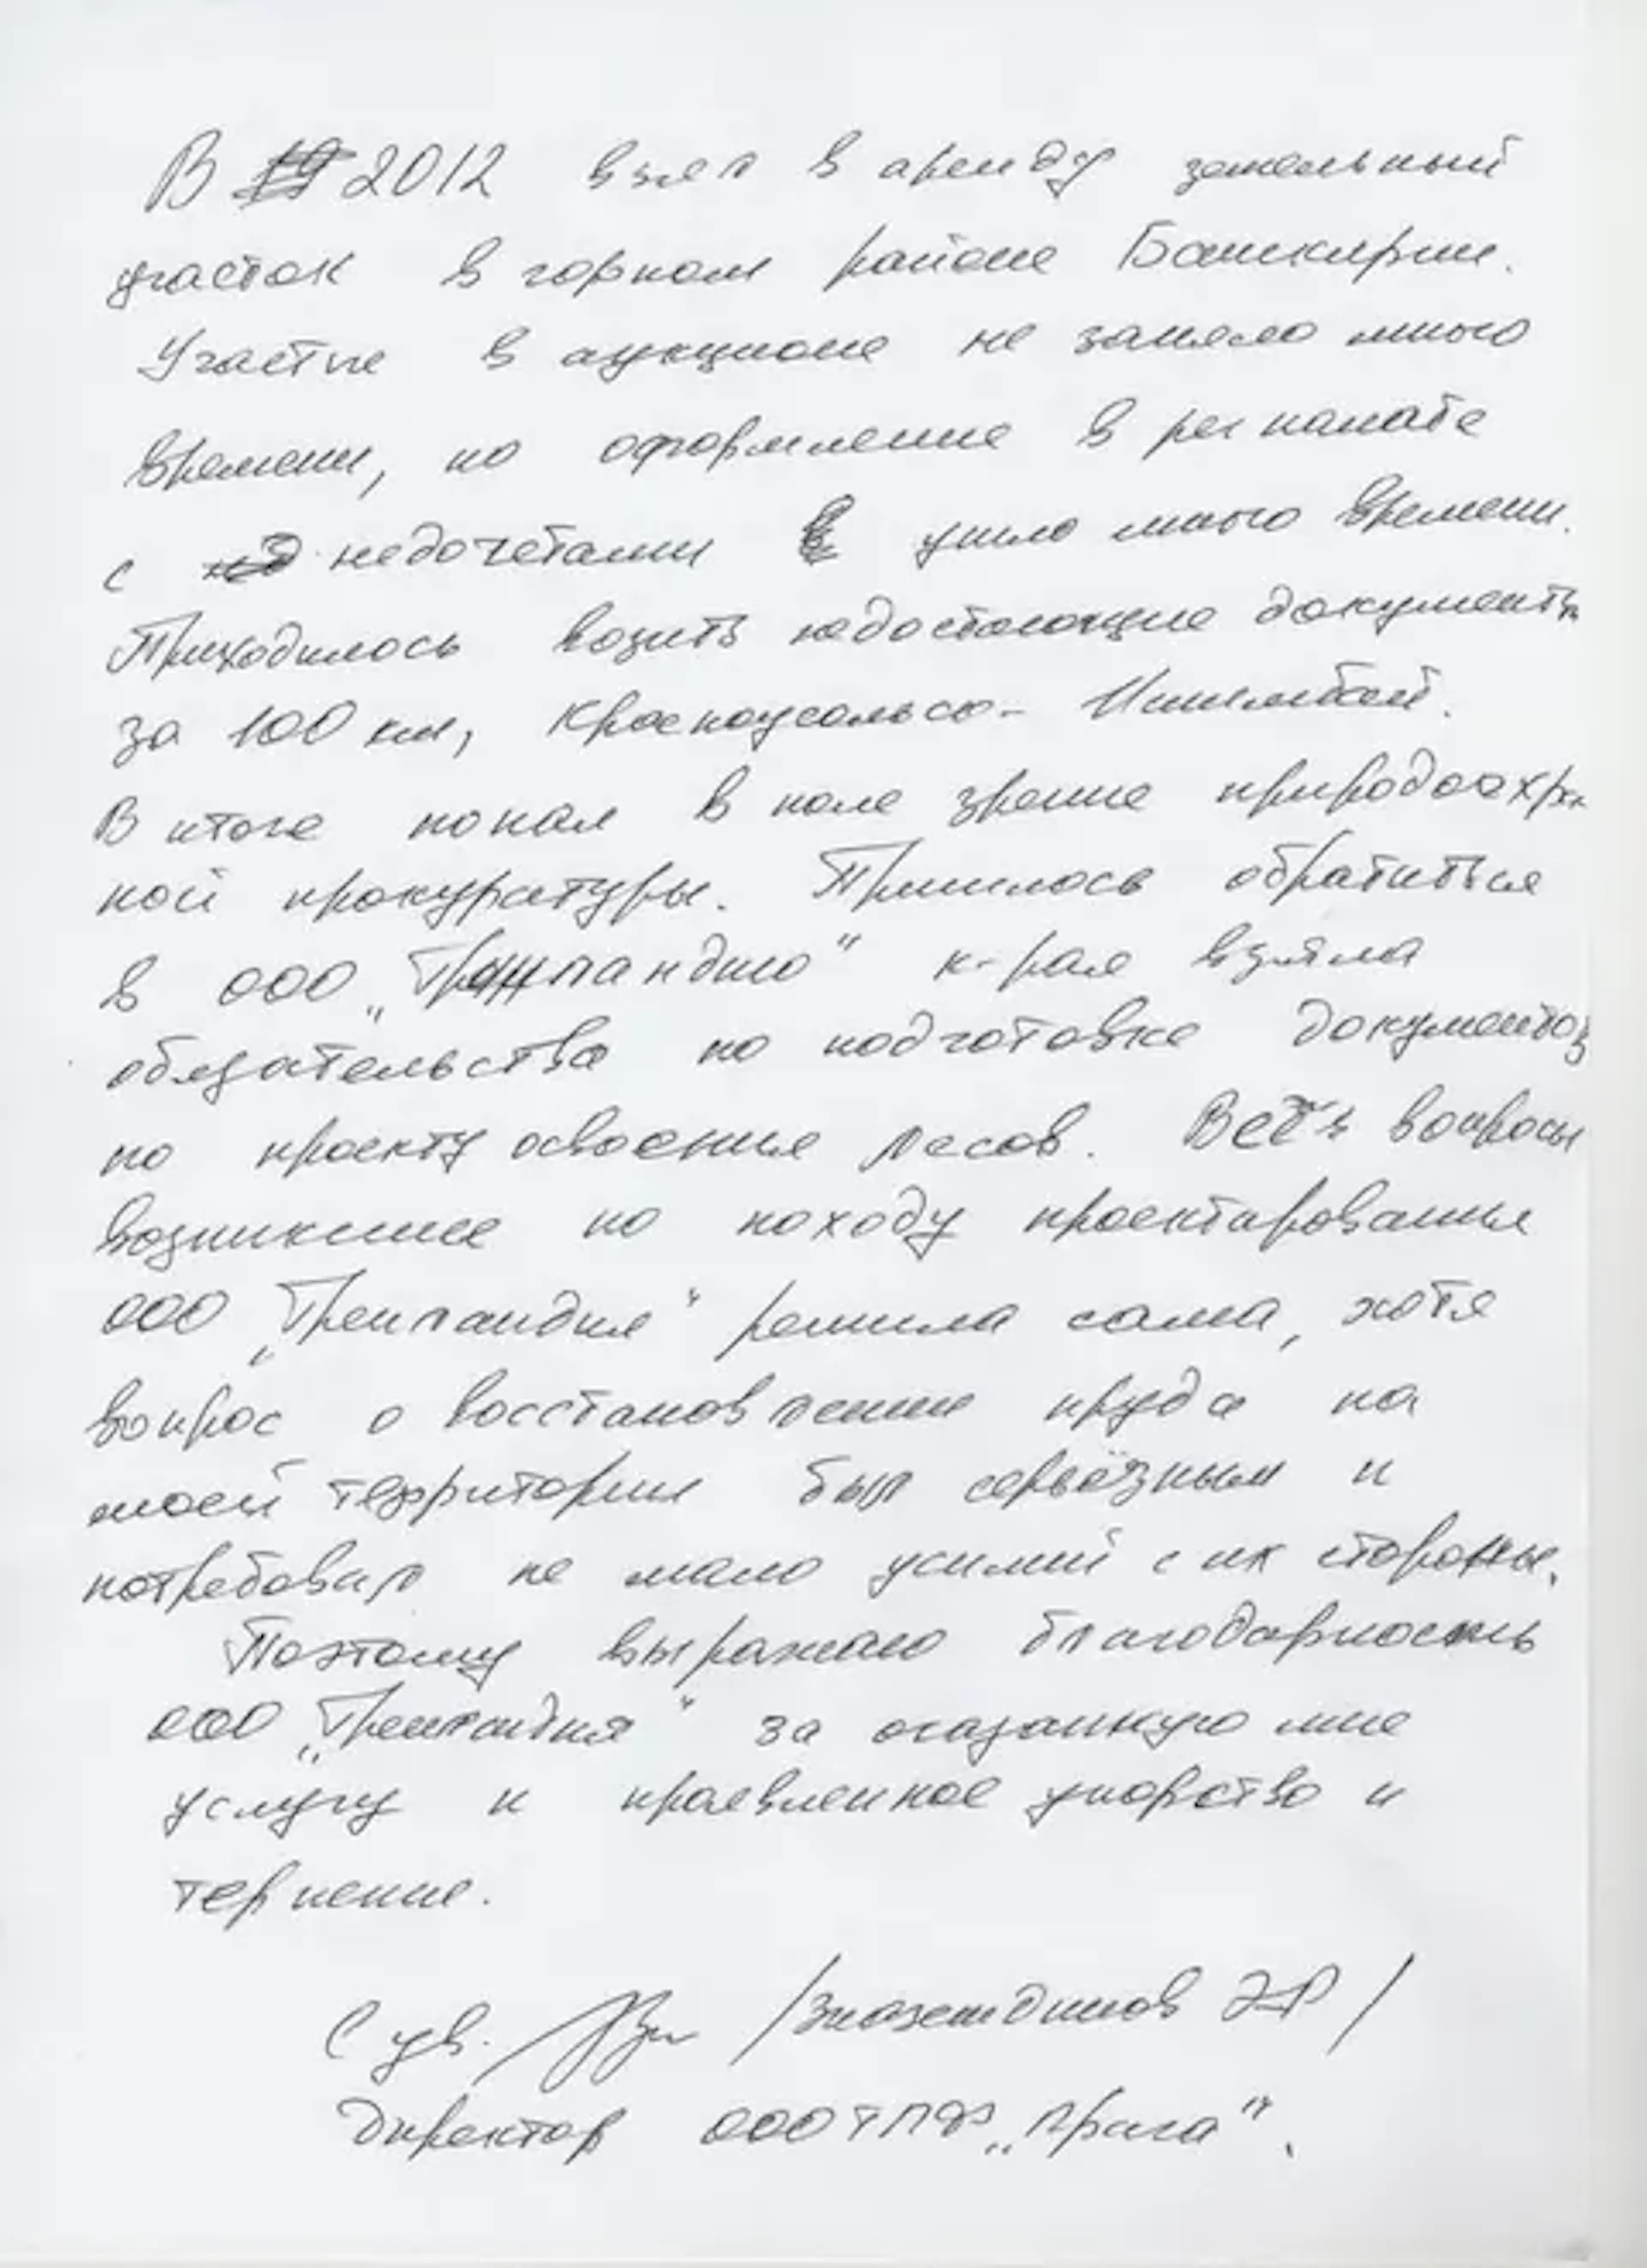 В 2012 взял в аренду земельный
участок в горном районе Башкирии.
Участие в аукционе не заняло много
времени, но оформление в регпалате
с недочетами ушло много времени.
Приходилось возить недостающие документы
за 100 км, Красноусольск - Ишимбай.
В итоге попал в поле зрение природоохран
ной прокуратуры. Пришлось обратиться
в ООО „Гринландию" к-рая взяла
обязательства по подготовке документов
по проекту освоения лесов. Все вопросы
возникшие по походу проектирования
ООО „Гренландия" решила сама, хотя
вопрос о восстановлении пруда на
моей территории был серьёзным и
потребовал не мало усилий с их стороны.
Поэтому выражаю благодарность
ООО „Гренландия" за оказанную мне
услугу и проявленное упорство и
терпение.
С ув. /Зиазетдинов /
Директор ООО ТПФ „Прага".